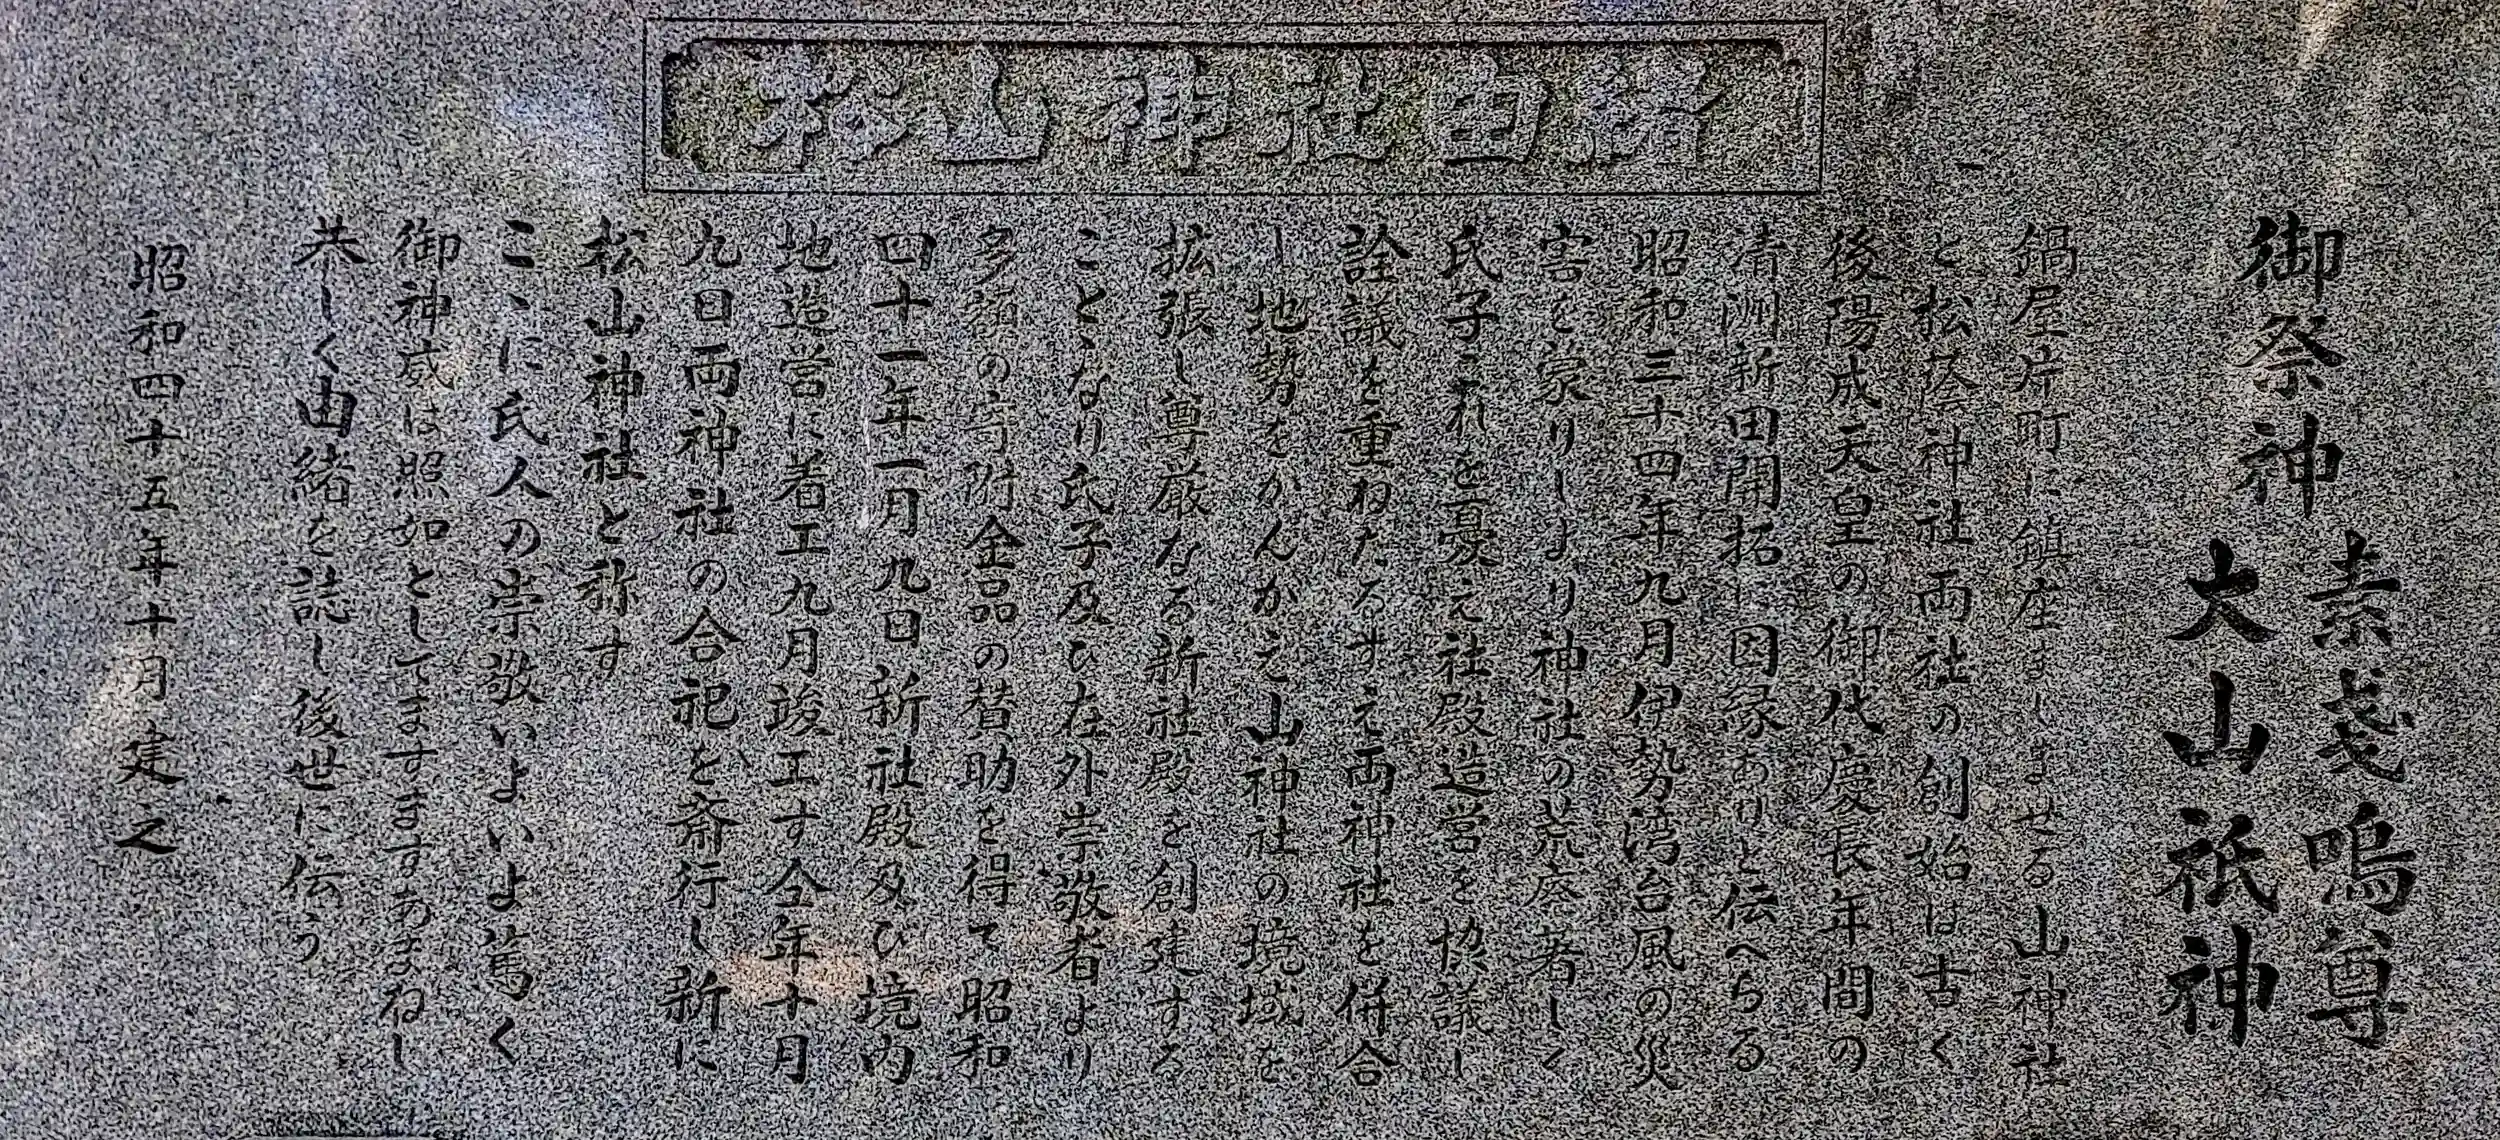 松山神社由緒
御祭神
素戔嗚尊
大山祇神
鍋屋片町に鎮座ましませる山神社
と松蔭神社両社の創始は古く
後陽成天皇の御代慶長年間の
清洲新田開拓に因縁ありと伝へらる
昭和三十四年九月伊勢湾台風の災
害を蒙りしより神社の荒廃著しく
氏子これを憂え社殿造営を協議し
詮議を重ねたるすえ両神社を併合
し地勢をかんがえ山神社の境域を
拡張し尊厳なる新社殿を創建する
こととなり氏子及び在外崇敬者より
多額の寄附金品の賛助を得て昭和
四十一年一月九日新社殿及び境内
地造営に着工九月竣工す仝年十月
九日両神社の合祀を斎行し新に
松山神社と称す
こゝに氏人の崇敬いよいよ篤く
御神威は照如としてますますあまねし
恭しく由緒を誌し後世に伝う
昭和四十五年十月建之